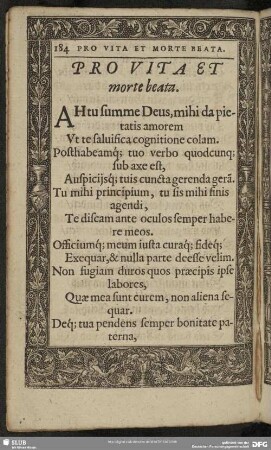 184 PRO VITA ET MORTE BEATA.
PRO VITA ET
morte beata.
AH tu summe Deus, mihi da pie-
tatis amorem
Vt te saluifica cognitione colam.
Posthabeamq; tuo verbo quodcunq;
sub axe est,
Auspiciisq; tuis cuncta gerenda gerã.
Tu mihi principium, tu sis mihi finis
agendi,
Te discam ante oculos semper habe-
re meos.
Officiumq; meum iusta curaq; fideq;
Exequar, & nulla parte deesse velim.
Non fugiam duros quos præcipis ipse
labores,
Quæ mea sunt curem, non aliena se-
quar.
Deq; tua pendens semper bonitate pa-
terna,
SLUB
DFG